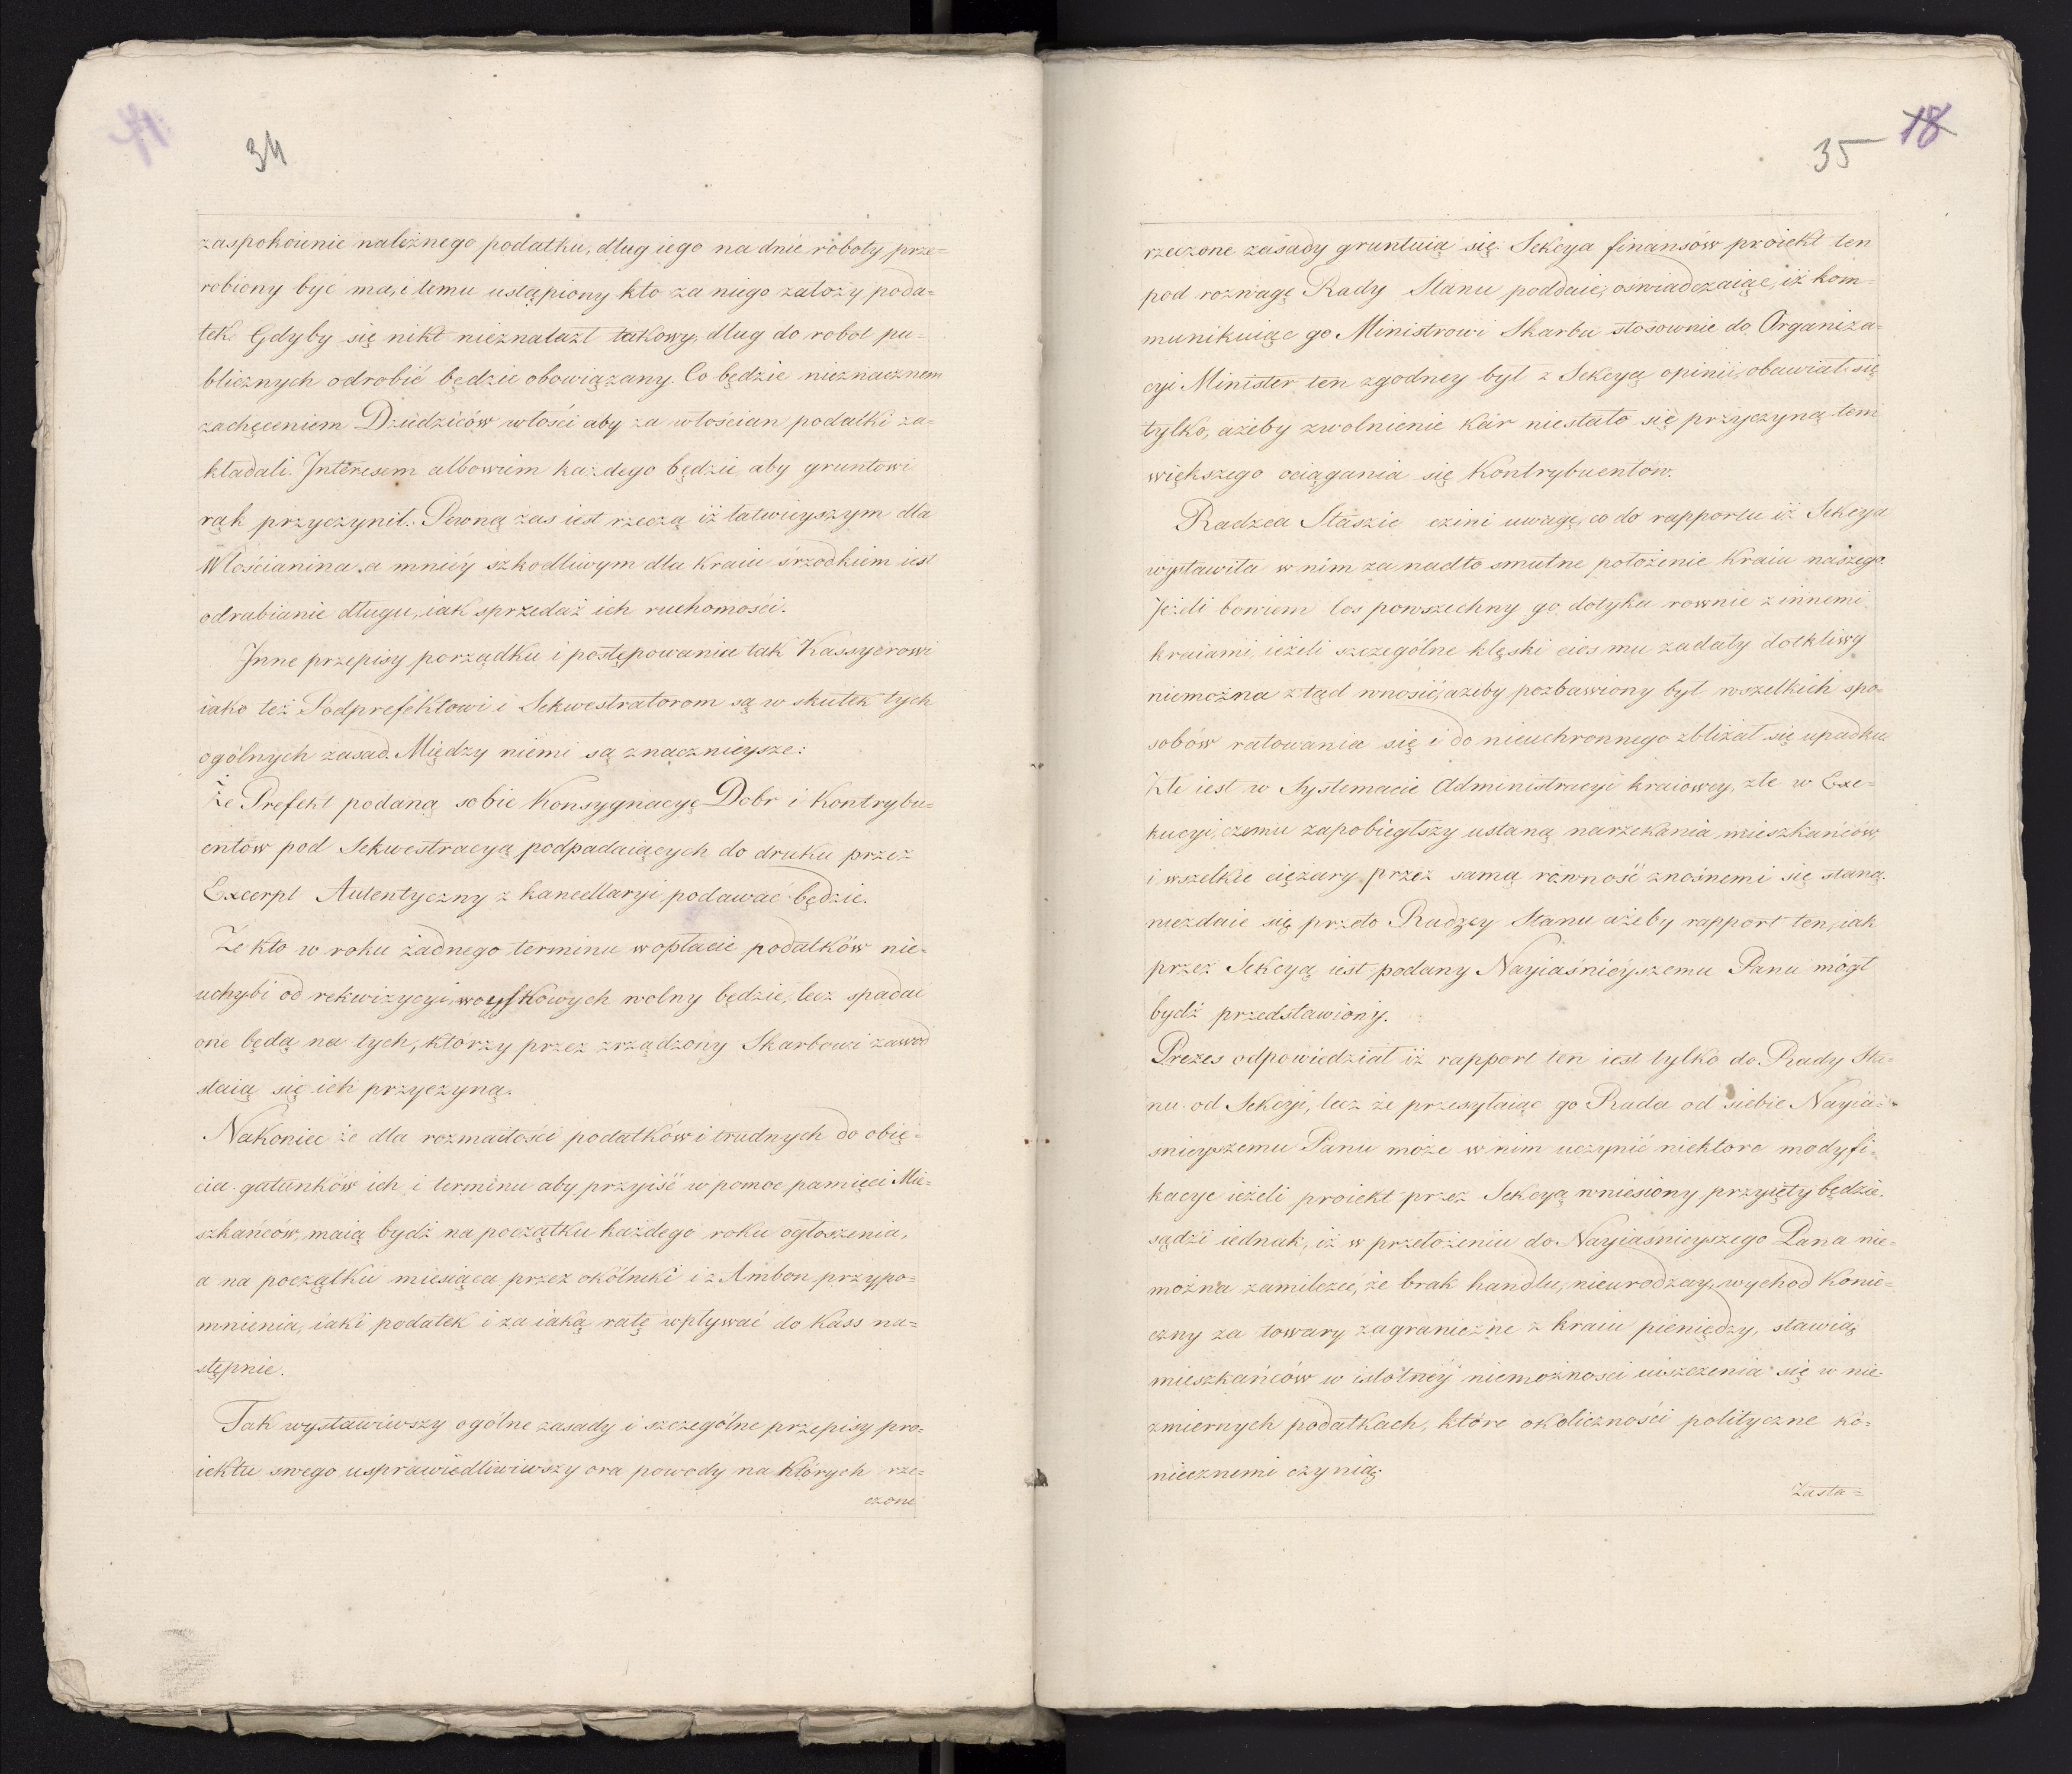 34
zaspokoienie należnego podatku, dług iego na dnie roboty prze=
robiony być ma, i temu ustąpiony kto za niego założy poda=
tek. Gdyby się nikt nieznalazł takowy, dług do robot pu=
blicznych odrobić będzie obowiązany. Co będzie nieznacznem
zachęceniem Dziedziców włości aby za włościan podatki za=
kładali. Interesem albowiem każdego będzie aby gruntowi
rąk przyczynił. Pewną zas iest rzeczą iż łatwieyszym dla
Włościanina, a mniéy szkodliwym dla kraiu śrzodkiem iest
odrabianie długu, iak sprzedaż ich ruchomości.
Jnne przepisy porządku i postępowania tak Kassyerowi
iako też Podprefektowi i Sekwestratorom są w skutek tych
ogólnych zasad. Między niemi są znacznieysze:
Że Prefekt podaną sobie Konsygnacyę Dobr i Kontrybu=
entów pod Sekwestracyą podpadaiących do druku przez
Excerpt Autentyczny z kancellaryi podawać będzie.
Że kto w roku żadnego terminu w opłacie podatków nie=
uchybi od rekwizycyi woyskowych wolny będzie, lecz spadać
one będą na tych, ktorzy przez zrządzony Skarbowi zawod
staią się ich przyczyną.
Nakoniec że dla rozmaitości podatków i trudnych do obię=
cia gatunków ich i terminu aby przyiść w pomoc pamięci Mie=
szkańców, maią bydź na początku każdego roku ogłoszenia,
a na początku miesiąca przez okólniki i z Ambon przypo=
mnienia, iaki podatek i za iaką ratę wpływać do Kass na=
stępnie.
Tak wystawiwszy ogólne zasady i szczególne przepisy pro=
iektu swego usprawiedliwiwszy ora powody na których rze=
czone
35 18
rzeczone zasady gruntuią się. Sekcya finansów proiekt ten
pod rozwagę Rady Stanu poddaie, oswiadczaiąc, iż kom=
munikuiąc go Ministrowi Skarbu stosownie do Organiza=
cyi Minister ten zgodney był z Sekcyą opinii, obawiał się
tylko, ażeby zwolnienie Kar niestało się przyczyną tem
większego ociągania się Kontrybuentów.
Radzca Staszic czini uwagę, co do rapportu iż Sekcya
wystawiła w nim za nadto smutne położenie Kraiu naszego.
Jeżeli bowiem los powszechny go dotyka rownie z innemi
kraiami, ieżeli szczególne klęski cios mu zadały dotkliwy
niemożna ztąd wnosić, ażeby pozbawiony był wszelkich spo=
sobów ratowania się i do nieuchronnego zbliżał się upadku
Złe iest w Systemacie Administracyi kraiowey, złe w Exe=
kucyi, czemu zapobiegłszy ustaną narzekania mieszkańców,
i wszelkie ciężary przez samą równość znośnemi się staną.
niezdaie się przeto Radzcy Stanu ażeby rapport ten, iak
przez Sekcyą iest podany Nayiaśniéyszemu Panu mógł
bydź przedstawiony.
Prezes odpowiedział iż rapport ten iest tylko do Rady Sta=
nu od Sekcyi, lecz że przesyłaiąc go Rada od siebie Nayia=
snieyszemu Panu może w nim uczynić niektore modyfi=
kacye ieżeli proiekt przez Sekcyą wniesiony przyięty będzie.
sądzi iednak, iż w przełożeniu do Nayiaśnieyszego Pana nie=
można zamilczeć, że brak handlu, nieurodzay, wychod Konie=
czny za towary zagraniczne z kraiu pieniędzy, stawią
mieszkańców w istotnéy niemożnosci uiszczenia się w nie=
zmiernych podatkach, które okoliczności polityczne ko=
niecznemi czynią.
Zasta=